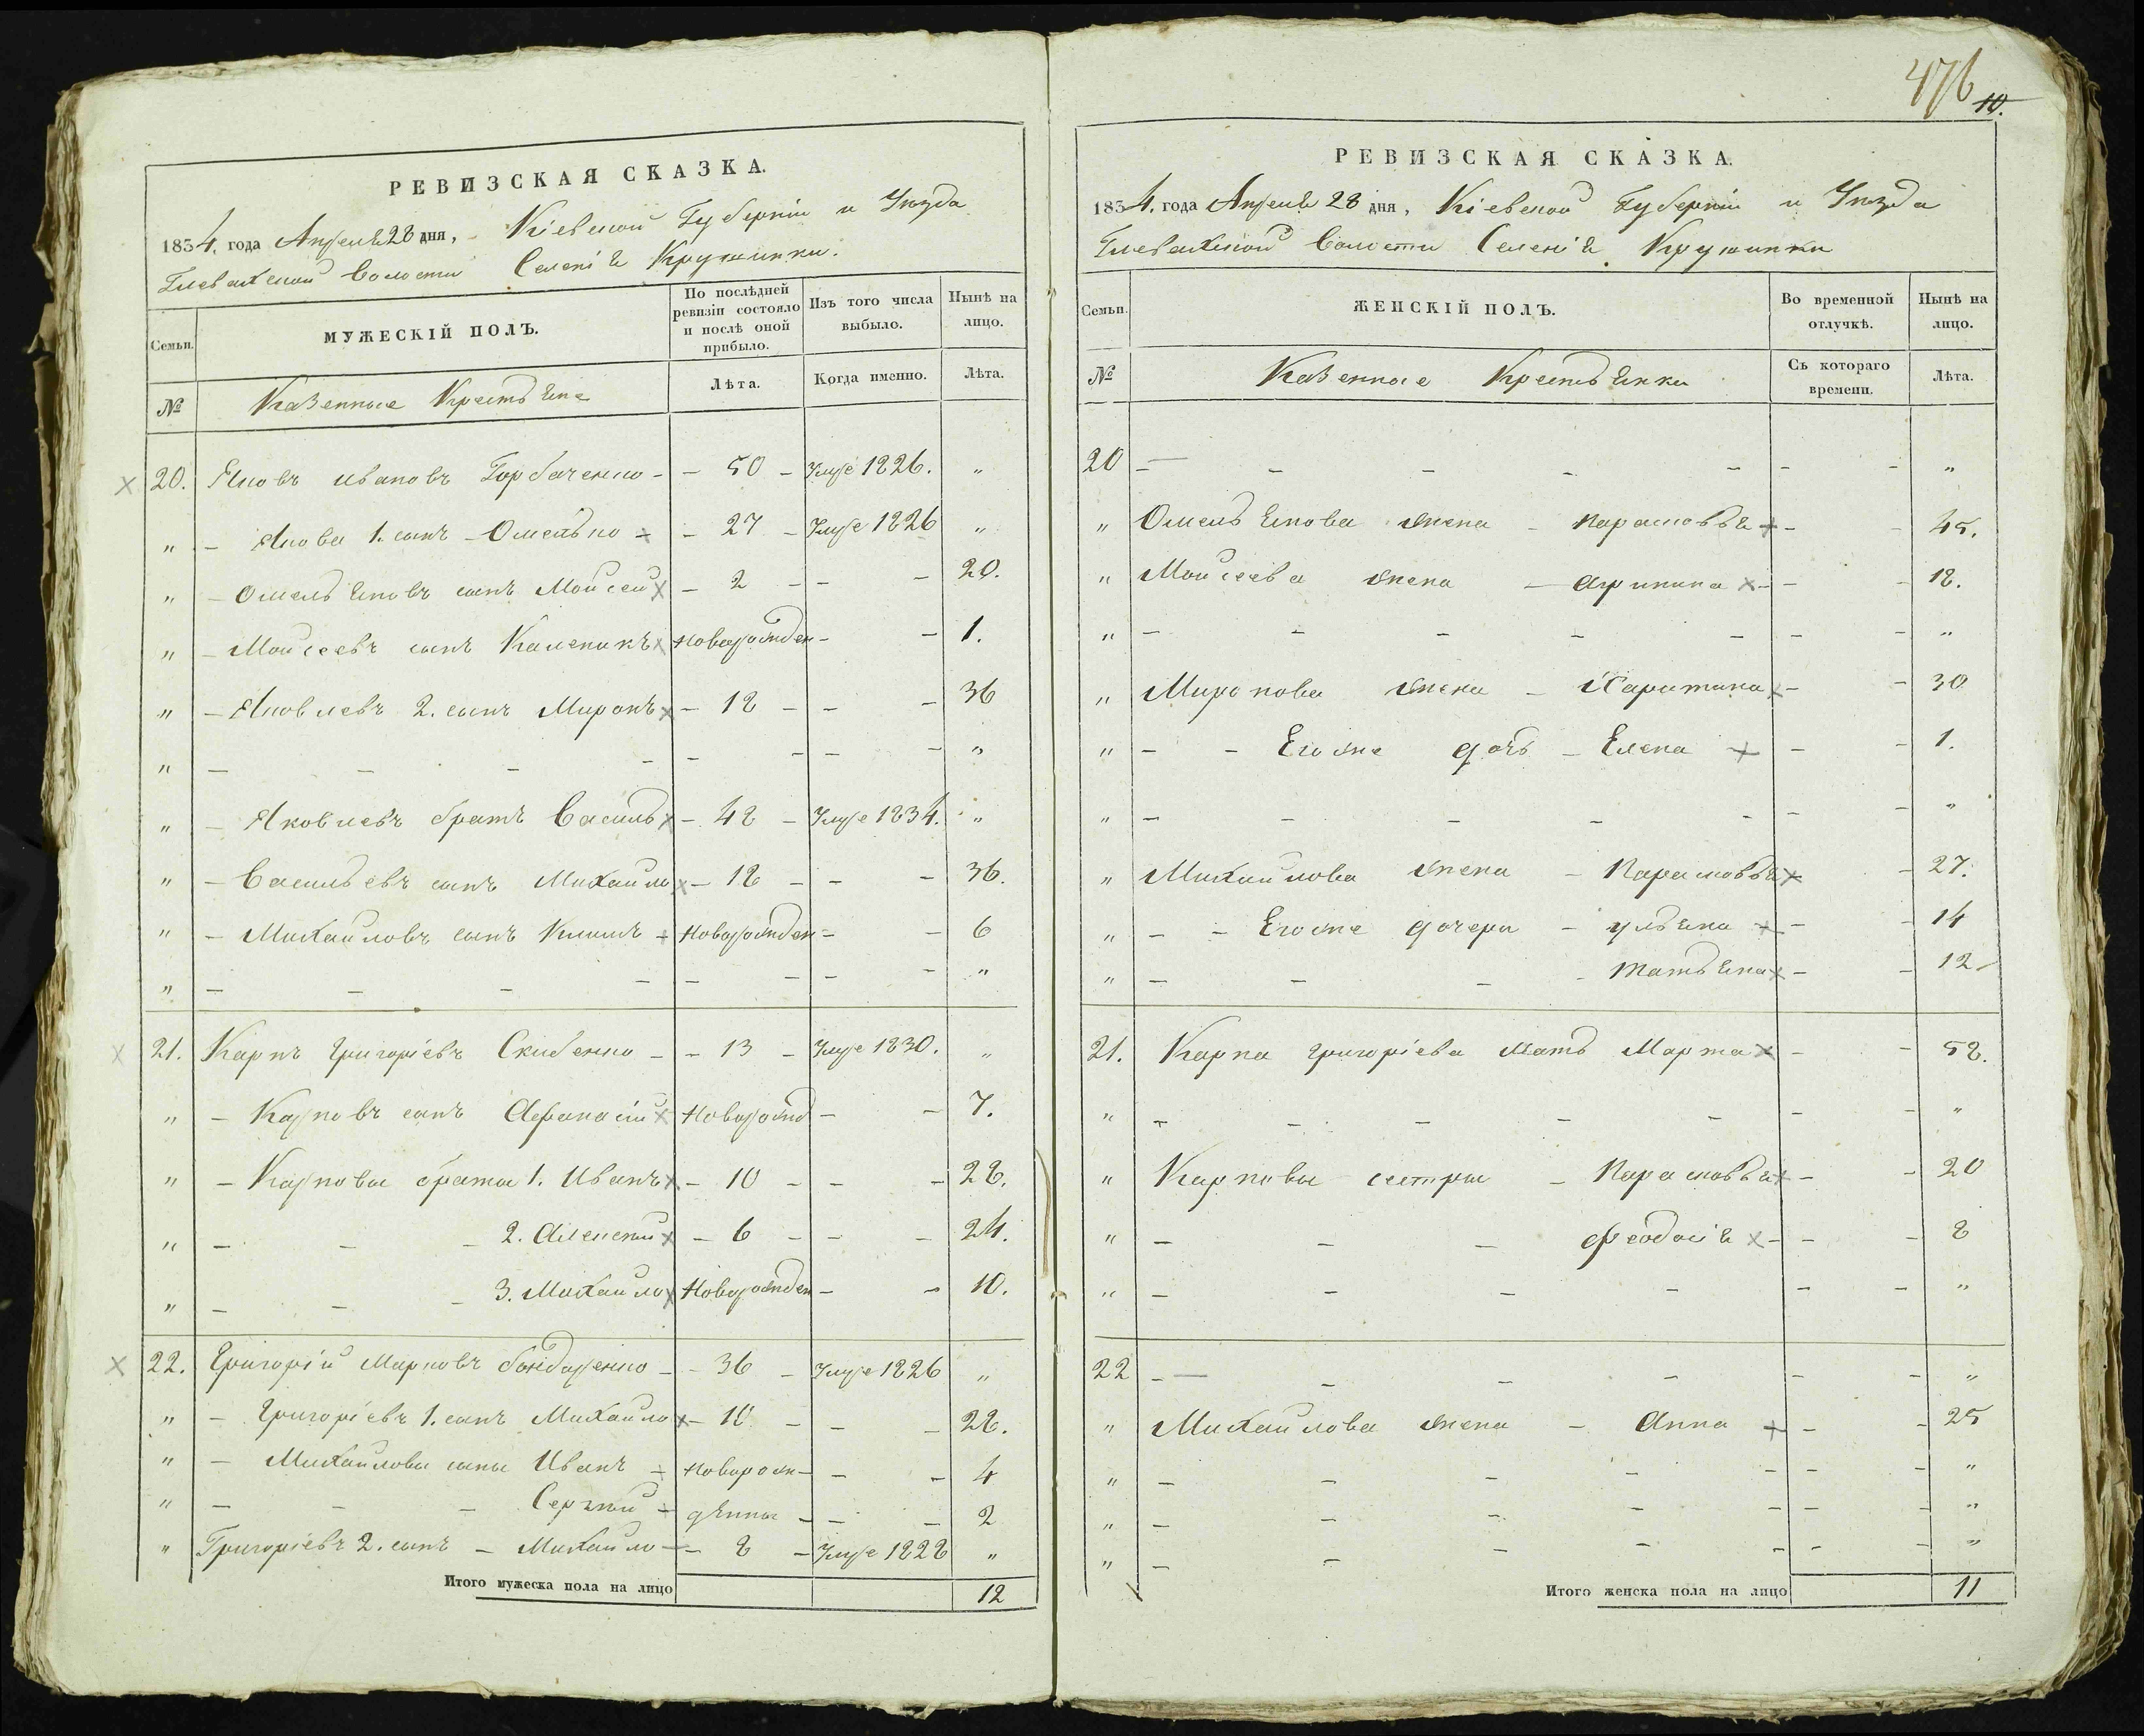 476
10.
РЕВИЗСКАЯ СКАЗКА.
1834. года Апреля 28 дня, Кіевской Губерніи и Уезда
Глевахской Волости Селенія Кружники.
Семьи.
МУЖЕСКІЙ ПОЛЪ.
По послѣдней ревизіи состояло и послѣ оной прибыло.
Изъ того числа выбыло.
Нынѣ на лицо.
№
Казенные Крестьяне
Лѣта.
Когда именно.
Лѣта.
20. Яковъ Ивановъ Горбаченко - - 50 - Умре 1826. „
„ - Якова 1. сынъ - Омелько - 27 - Умре 1826 „
„ - Омельяновъ сынъ Мойсей - 2 - - - 20.
„ - Мойсеевъ сынъ Каленикъ Новорожден - - 1.
„ - Яковлевъ 2. сынъ Миронъ - 18 - - - 36
„ - - - - - - - - „
„ - Яковлевъ братъ Василь - 48 - Умре 1834. „
„ - Васильевъ сынъ Михайло - 18 - - - 36.
„ - Михайловъ сынъ Климъ Новорожден - - 6
„ - - - - - - - - „
21. Карпъ Григоріевъ Скибенко - - 13 - Умре 1830. „
„ - Карповъ сынъ Афанасій Новорожд - - 7.
„ - Карповы браты 1. Иванъ - 10 - - - 28.
„ - - - 2. Алексѣй - 6 - - - 24.
„ - - - 3. Михайло Новорожден - - 10.
22. Григорій Марковъ Бондаренко - - 36 - Умре 1826 „
„ - Григоріевъ 1. сынъ Михайло - 10 - - - 28.
„ - Михайловы сыны Иванъ Новорож- - - 4
„ - - - Сергѣй дѣнны - - - 2
„ Григоріевъ 2. сынъ - Михайло - 8 - Умре 1828 „
Итого мужеска пола на лицо 12
РЕВИЗСКАЯ СКАЗКА.
1834. года Апреля 28 дня, Кіевской Губерніи и Уезда
Глевахской Волости Селенія Кружники
Семьи.
ЖЕНСКІЙ ПОЛЪ.
Во временной отлучкѣ.
Нынѣ на лицо.
№
Казенные Крестьянки
Съ котораго времени.
Лѣта.
20 - - - - - - - „
„ Омельянова жена - Парасковья - - 45.
„ Мойсеева жена - - - 18.
„ - - - - - - - „
„ Миронова жена - Харитина - - 30
„ - - Его же дочь - Елена - - 1.
„ - - - - - - - „
„ Михайлова жена - Парасковья - 27.
„ - - Его же дочери - Ульяна - - 14
„ - - - - Татьяна - - 12
21. Карпа Григоріева Мать Марта - - 58.
„ - - - - - - - „
„ Карповы сестры - Парасковья - - 20
„ - - - Феодосія - - - 8
„ - - - - - - „
22 - - - - - - „
„ Михайлова жена - Анна - - 25
„ - - - - - - - „
„ - - - - - - - „
„ - - - - - - - „
Итого женска пола на лицо 11